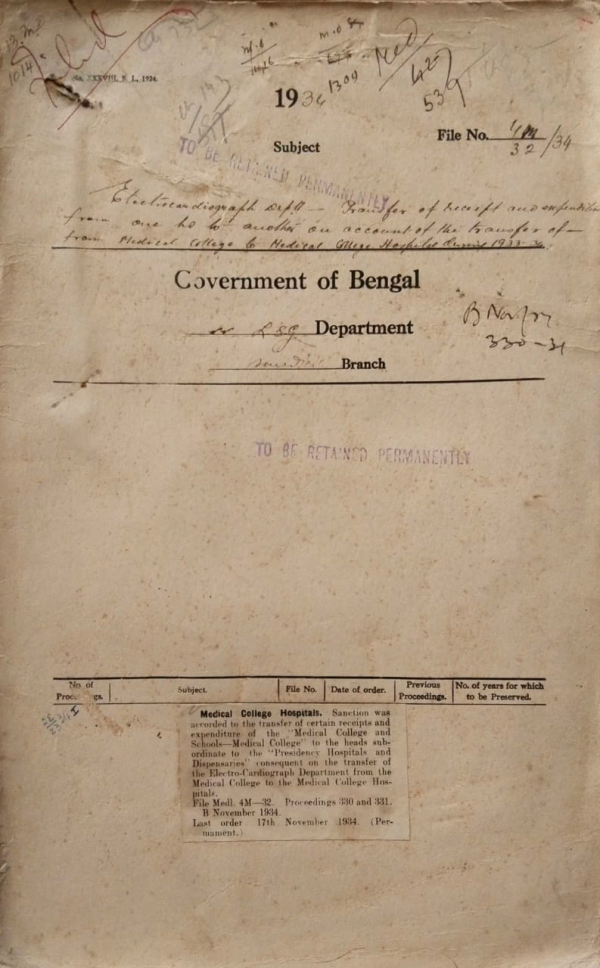 Filed
No. XXXVIII, B. L., 1934.
1934
Med
427
539
File No. 4M
32 /34
Subject
TO BE RETAINED PERMANENTLY
Electrocardiograph Deptt — Transfer of receipt and expenditure
from one hd to another on account of the transfer of
from Medical College to Medical College Hospitals during 1933-34.
Government of Bengal
LSG Department
Medical Branch
B Nov/34
330-31
TO BE RETAINED PERMANENTLY
No. of Proceedings. Subject. File No. Date of order. Previous Proceedings. No. of years for which to be Preserved.
Medical College Hospitals. Sanction was
accorded to the transfer of certain receipts and
expenditure of the "Medical College and
Schools—Medical College" to the heads sub-
ordinate to the "Presidency Hospitals and
Dispensaries" consequent on the transfer of
the Electro-Cardiograph Department from the
Medical College to the Medical College Hos-
pitals.
File Medl. 4M—32. Proceedings 330 and 331.
B November 1934.
Last order 17th November 1934. (Per-
mament.)